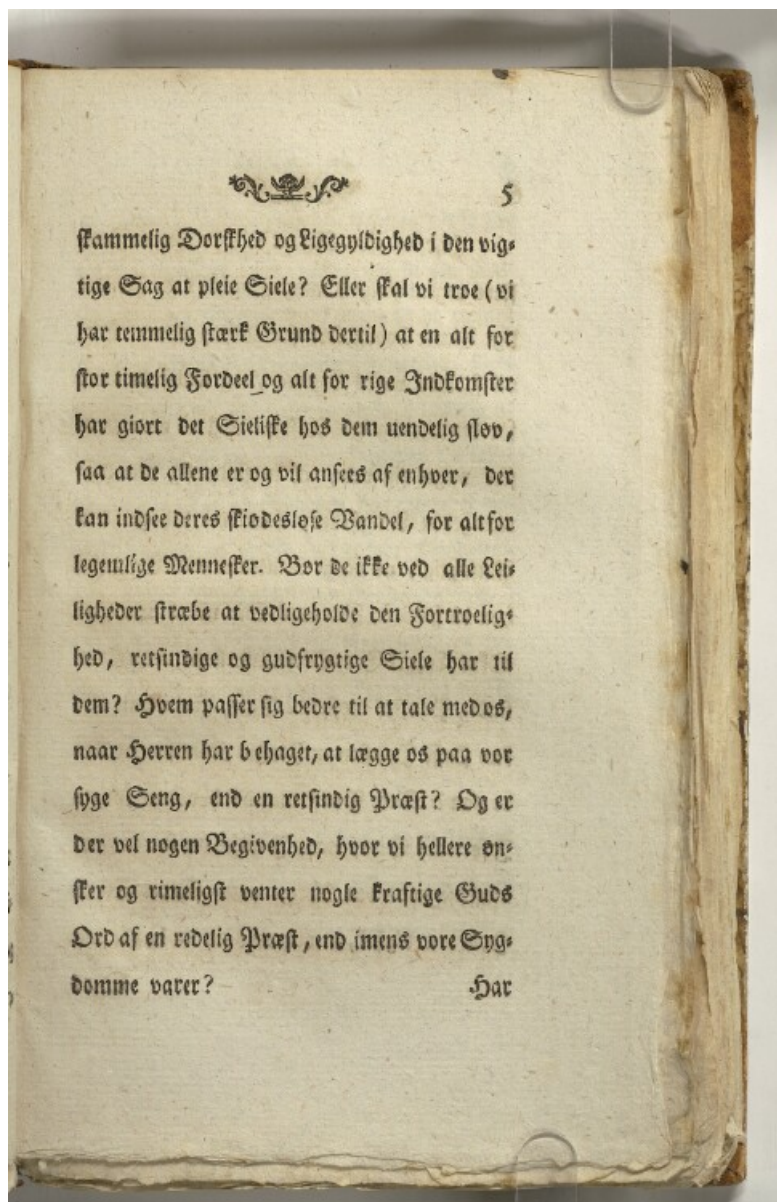 5
skammelig Dorskhed og Ligegyldighed i den vig-
tige Sag at pleie Siele? Eller skal vi troe (vi
har temmelig stærk Grund dertil) at en alt for
stor timelig Fordeel og alt for rige Indkomster
har giort det Sieliske hos dem uendelig sløv,
saa at de allene er og vil ansees af enhver, der
kan indsee deres skiødesløse Vandel, for altfor
legemlige Mennesker. Bør de ikke ved alle Lei-
ligheder stræbe at vedligeholde den Fortroelig-
hed, retsindige og gudfrygtige Siele har til
dem? Hvem passer sig bedre til at tale med os,
naar Herren har behaget, at lægge os paa vor
syge Seng, end en retsindig Præst? Og er
der vel nogen Begivenhed, hvor vi hellere øn-
sker og rimeligst venter nogle kraftige Guds
Ord af en redelig Præst, end imens vore Syg-
domme varer? Har